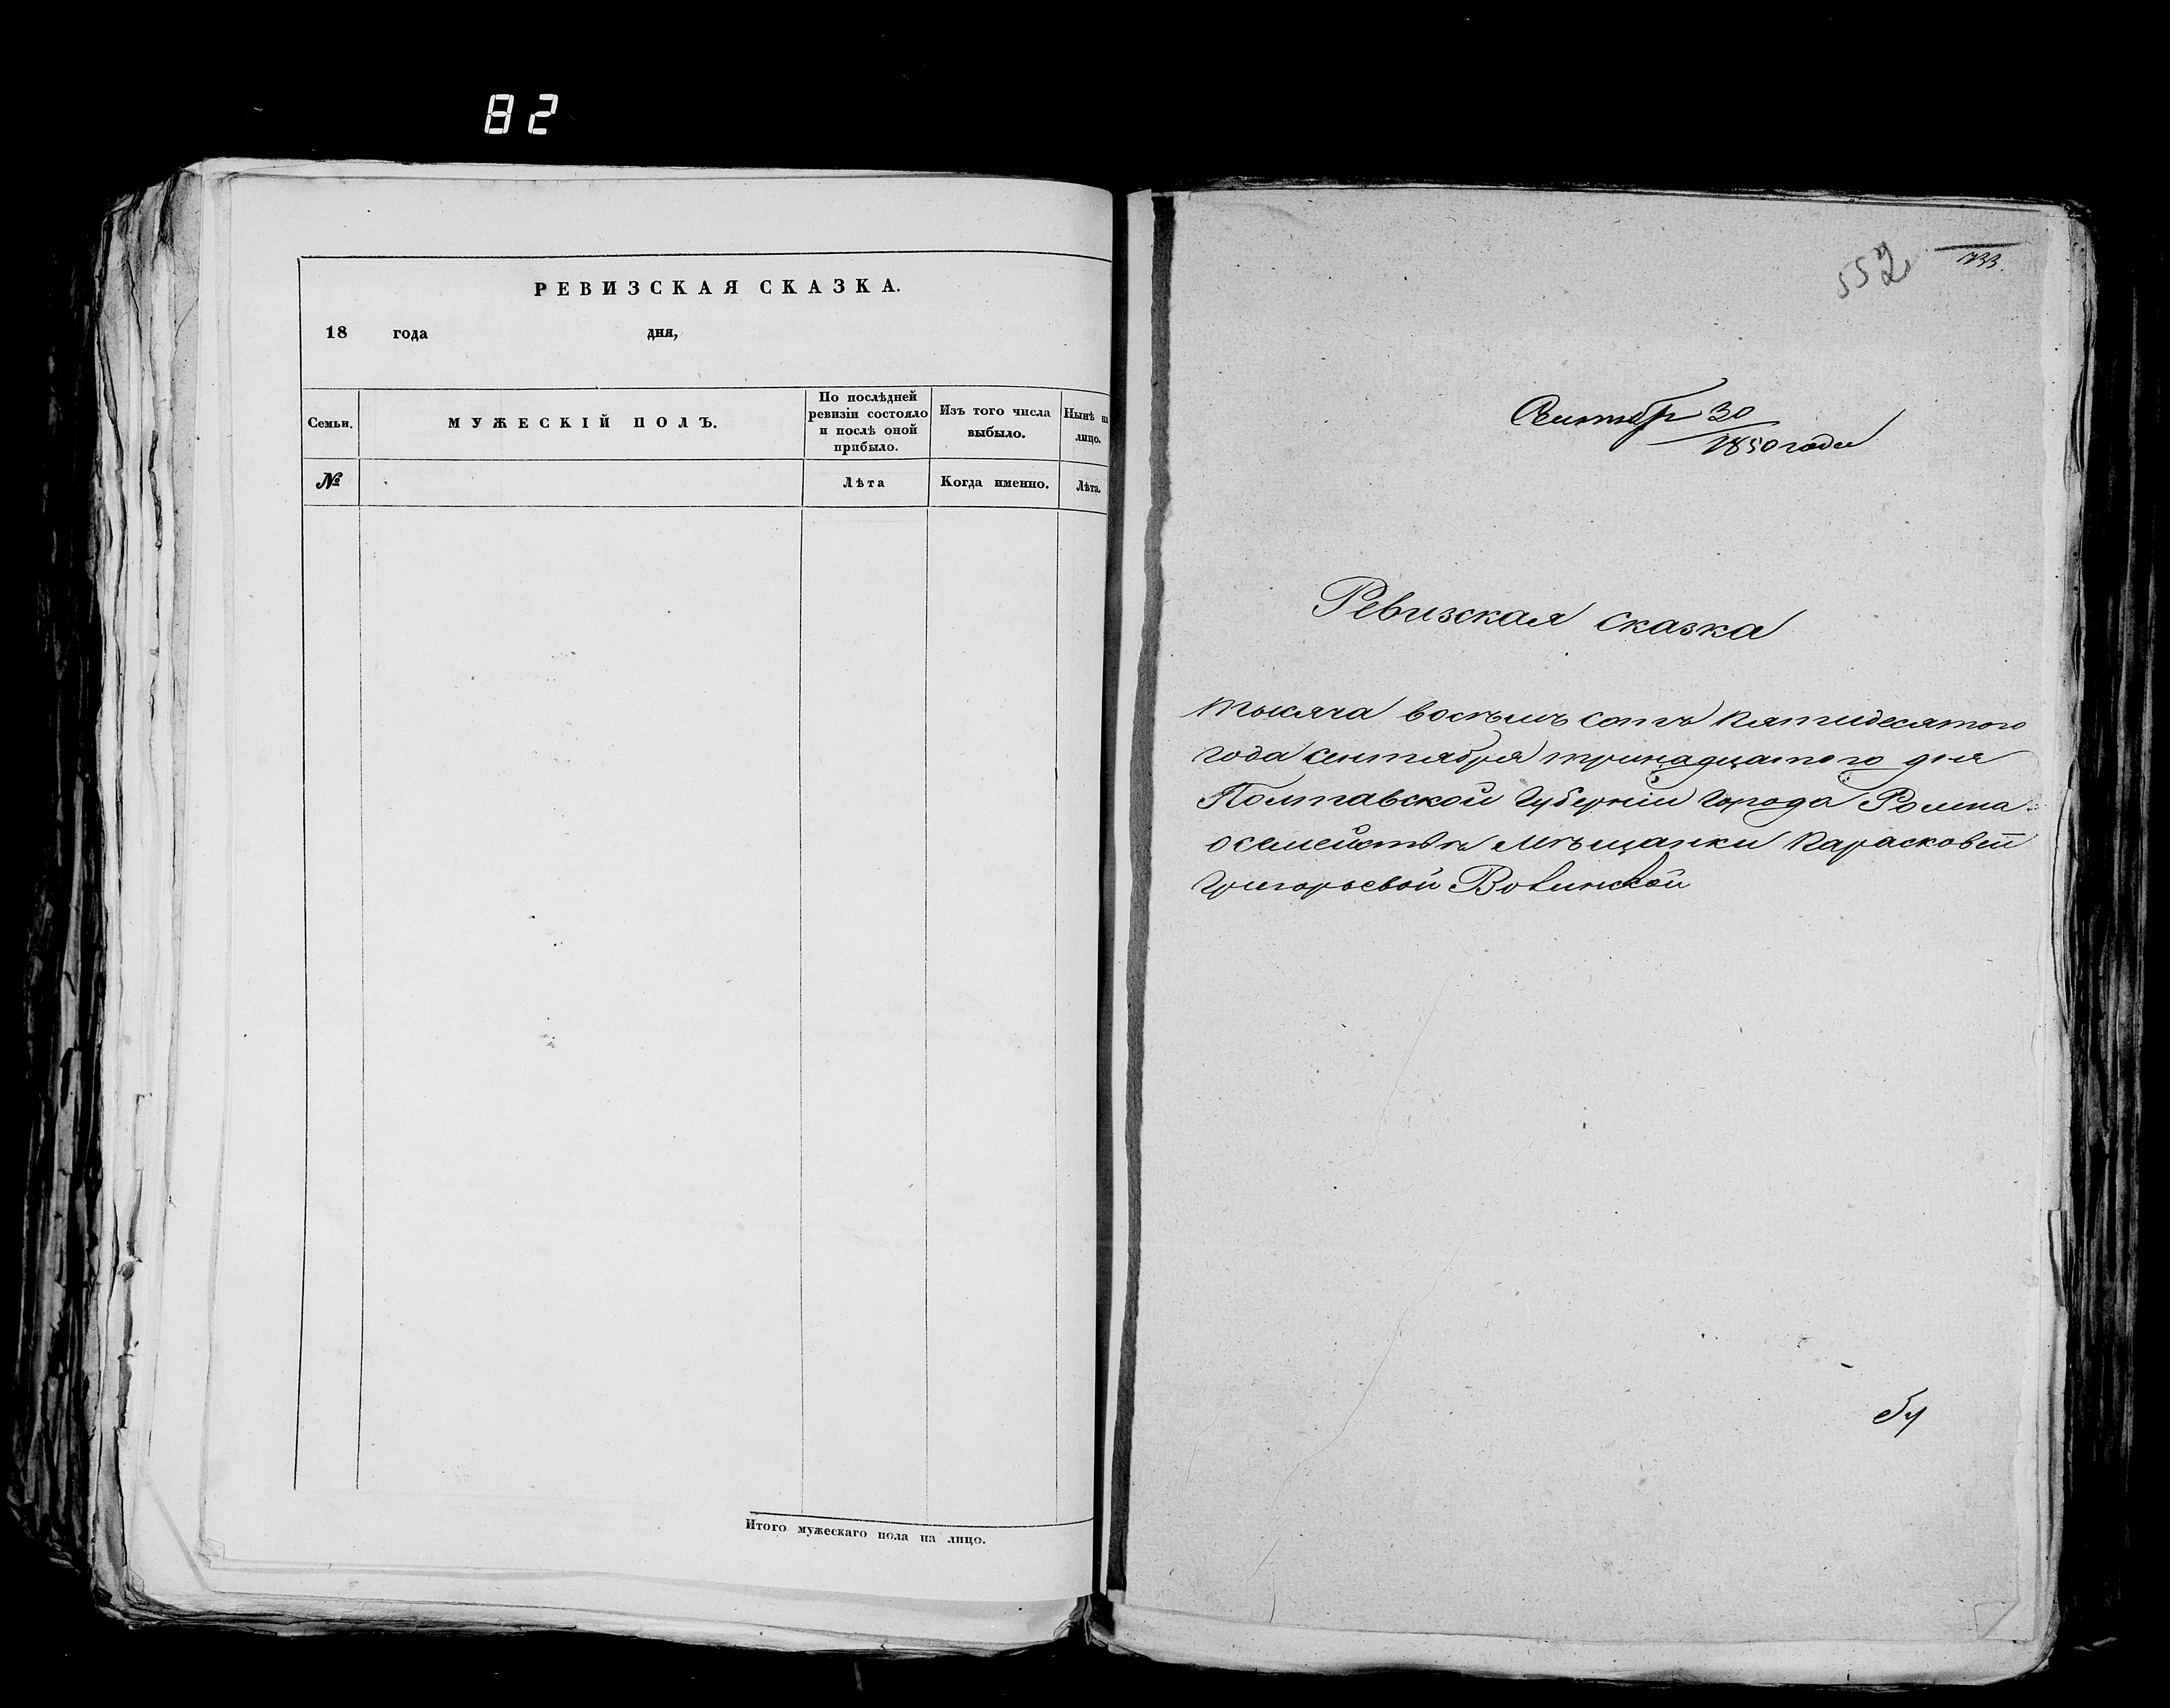 82
РЕВИЗСКАЯ СКАЗКА.
18 года дня,
Семьи.
МУЖЕСКІЙ ПОЛЪ.
По послѣдней
ревизіи состояло
и послѣ оной
прибыло.
Изъ того числа
выбыло.
Нынѣ на
лицо.
№
Лѣта
Когда именно.
Лѣта.
Итого мужескаго пола на лицо.
552
733.
Сентябр 30
1850 года
Ревизская сказка
тысяча восѣмь сотъ пятидесятого
года сентября тринадцатого дня
Полтавской Губерніи города Ромна
о семействѣ мѣщанки Парасковеи
Григорьевой